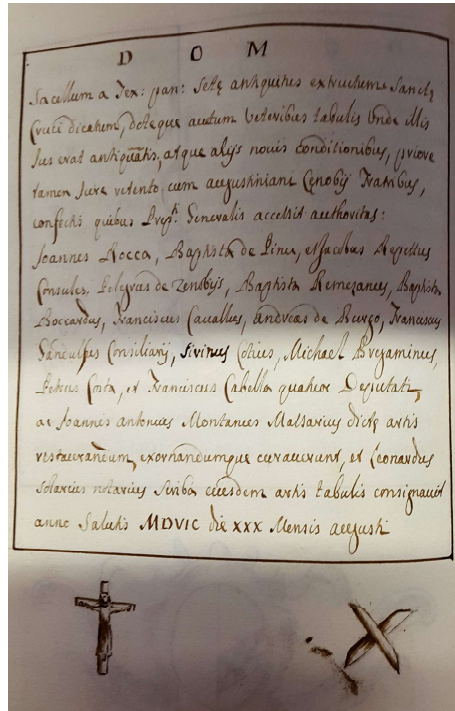 D O M
Sacellum a Tex: pan: Setę antiquitus extructum Sanctę
Cruci dicatum, doteque auctum veteribus tabulis unde illis
Jus erat antiquatis, atque alijs novis conditionibus, priore
tamen Jure retento cum augustiniani Cęnobij Fratribus,
confectis quibus Generalis accessit authoritas:
Joannes Rocca, Baptista de Pine, Jacobus Repettus
Consules, Pelegrus de Zenobijs, Baptista Remezanus, Baptista
Boccardus, Franciscus Cavallus, Andreas de Burgo, Franciscus
Consiliarij, Sivinus Michael Bregaminus,
Petrus Costa, et Franciscus Cabella quatuor Deputati,
ac Joannis antonius Montanus Massarius dictę artis
restaurandum, exornandumque curaverunt, et Leonardus
Solarius notarius scriba eiusdem artis tabulis consignavit
anno Salutis MDVIC die XXX Mensis augusti